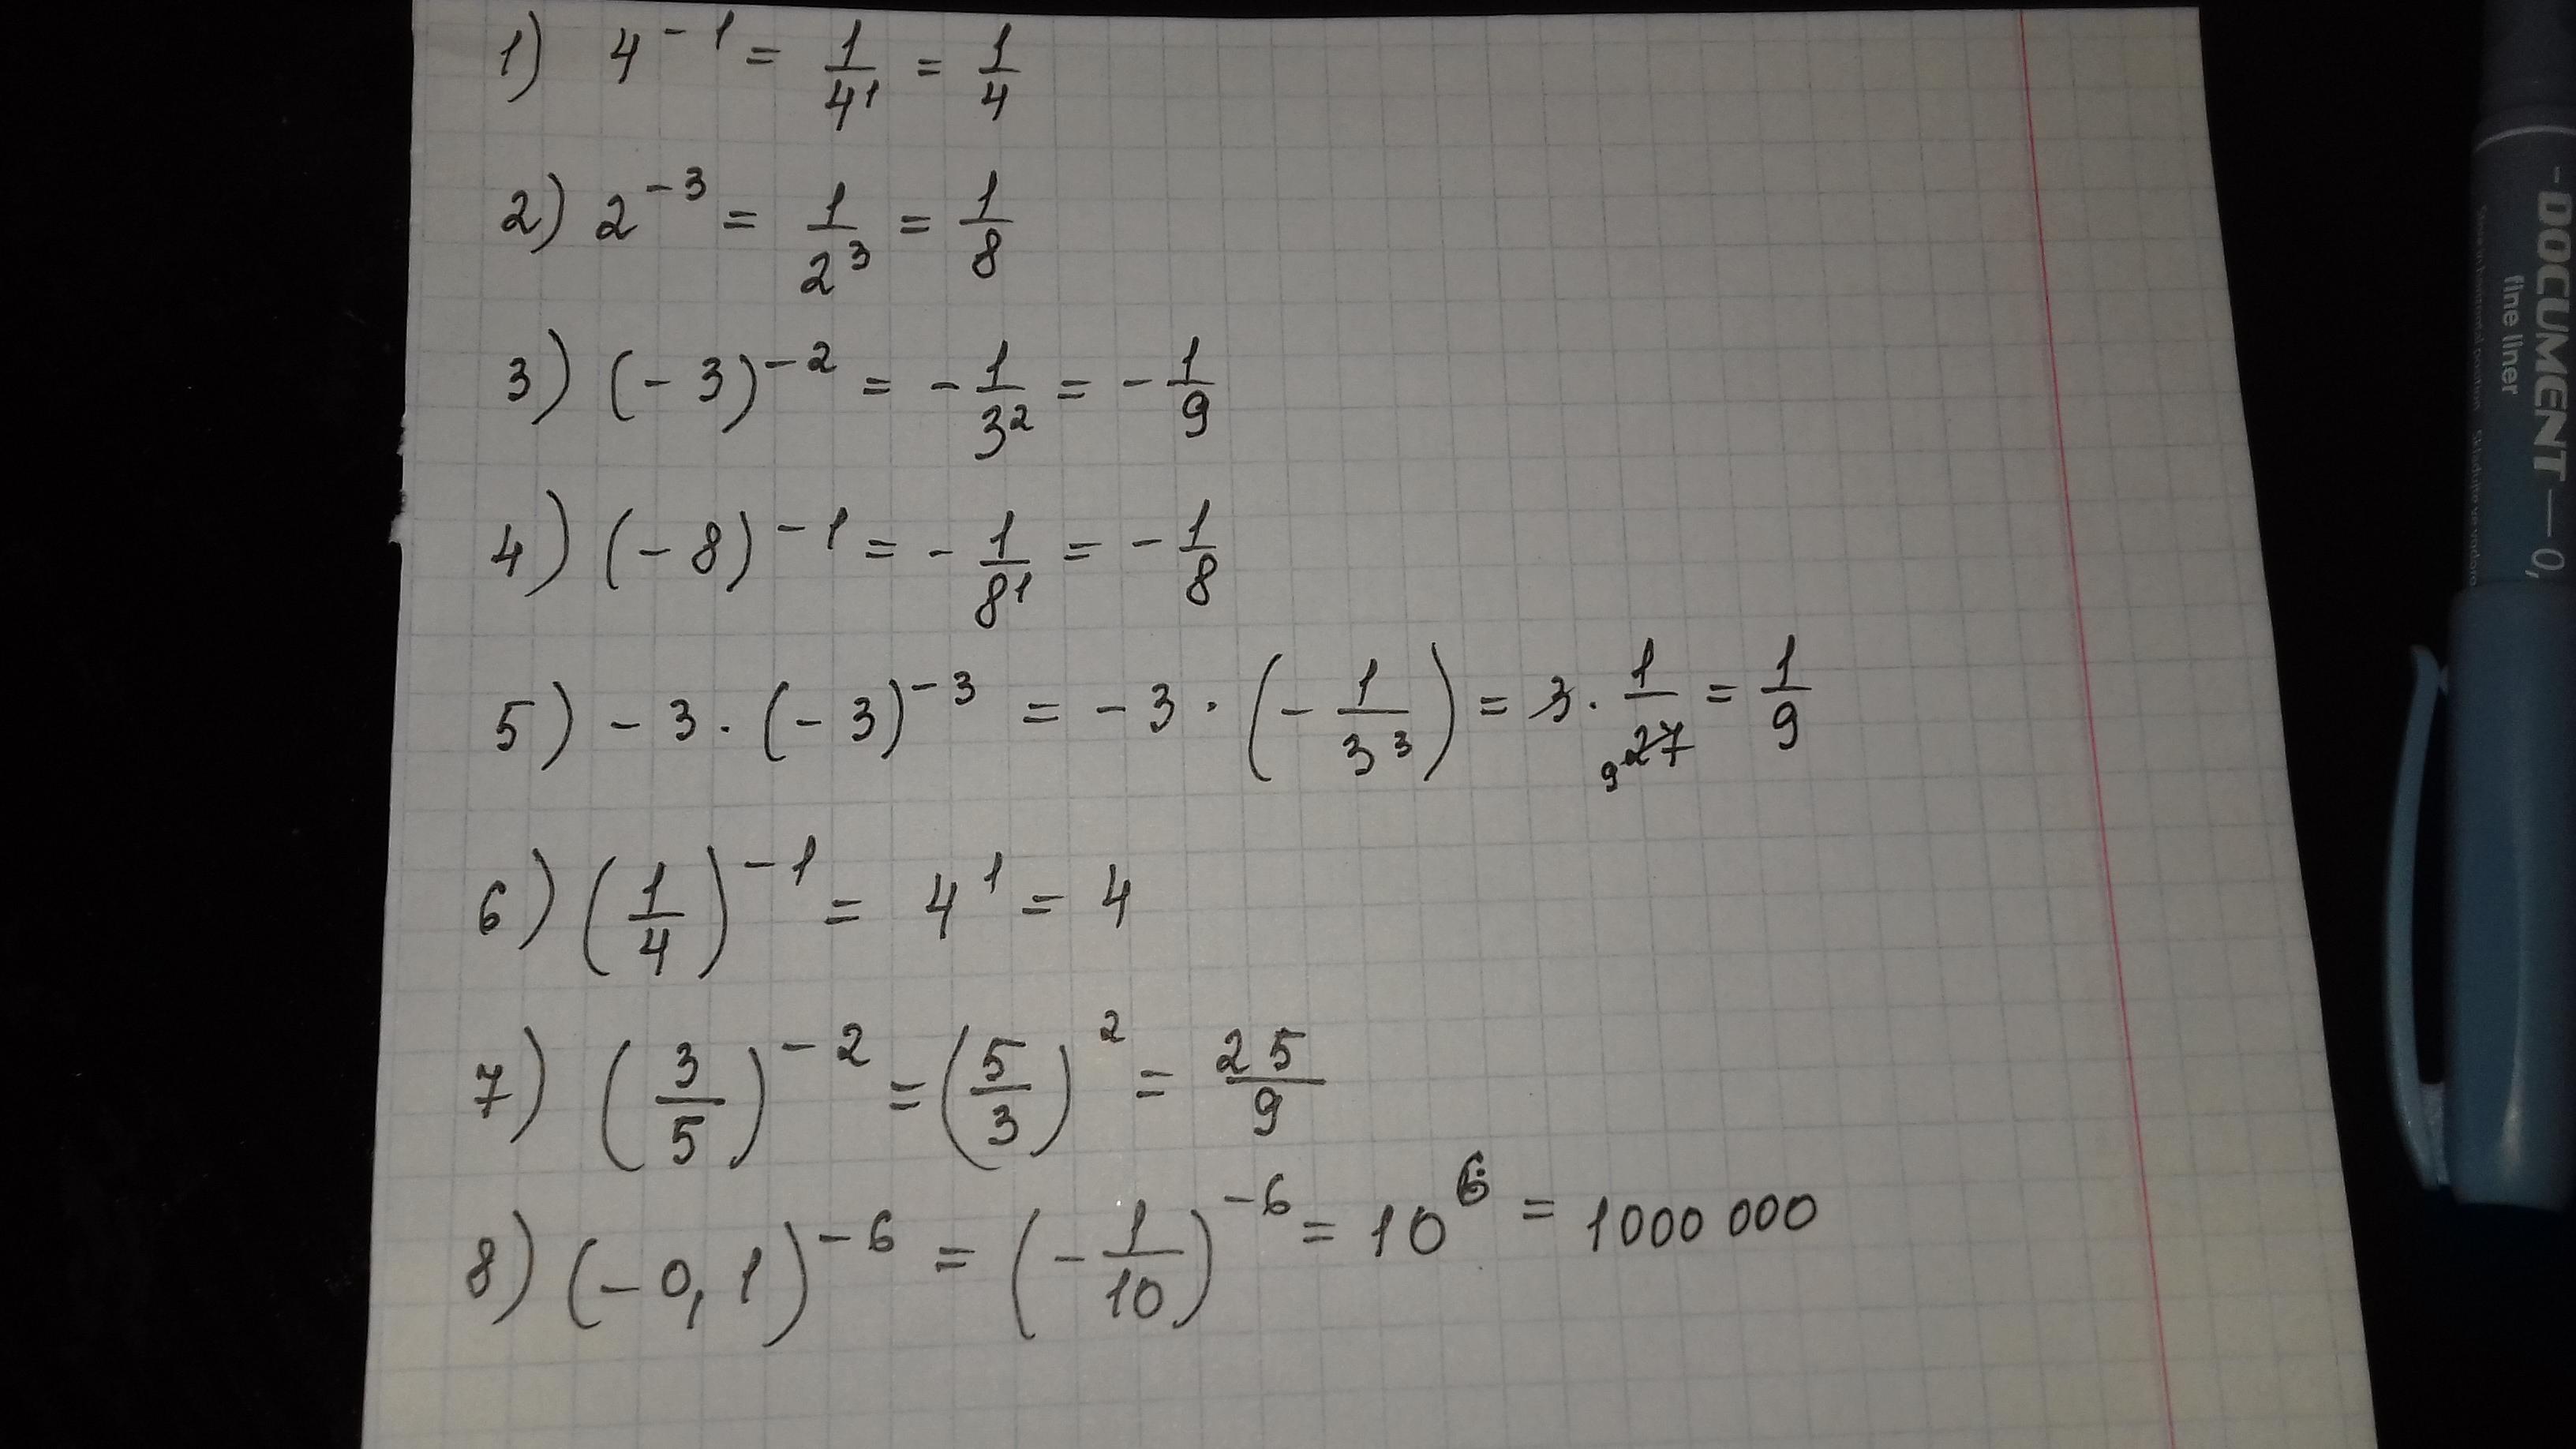 1) 4^-1 = 1/4^1 = 1/4
2) 2^-3 = 1/2^3 = 1/8
3) (-3)^-2 = -1/3^2 = -1/9
4) (-8)^-1 = -1/8^1 = -1/8
5) -3 · (-3)^-3 = -3 · (-1/3^3) = 3 · 1/27 9 = 1/9
6) (1/4)^-1 = 4^1 = 4
7) (3/5)^-2 = (5/3)^2 = 25/9
8) (-0,1)^-6 = (-1/10)^-6 = 10^6 = 1000 000
- DOCUMENT — 0,
fine liner